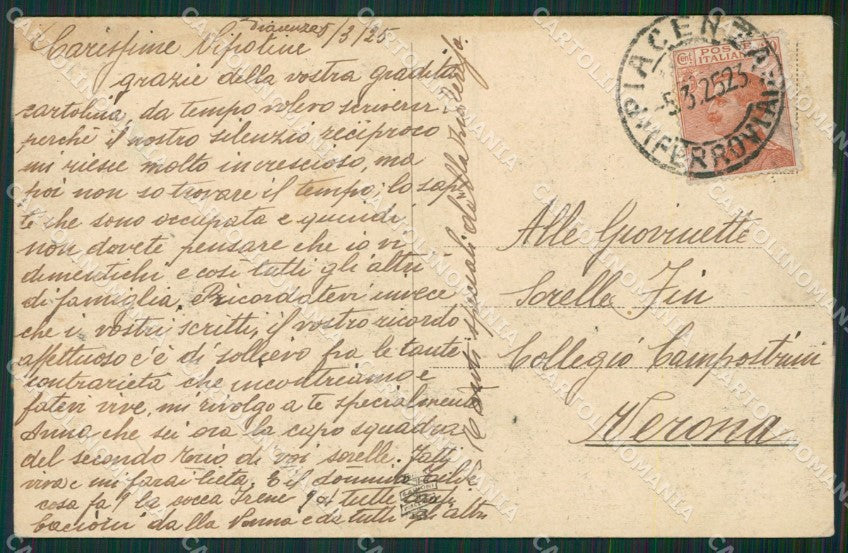 Piacenza 5/3/25
Carissime Nipotine
grazie della vostra gradita
cartolina, da tempo volevo scrivervi
perchè il nostro silenzio reciproco
mi riesce molto increscioso, ma
poi non so trovare il tempo, lo sape
te che sono occupata e quindi
non dovete pensare che io vi
dimentichi e così tutti gli altri
di famiglia. Ricordatevi invece
che i vostri scritti, il vostro ricordo
affettuoso c'è di sollievo fra le tante
contrarietà che incontriamo e
fatevi vive, mi rivolgo a te specialmente
Anna che sei ora la capo squadra
del secondo di voi sorelle. Fatti
viva e mi farai lieta. E il
cosa fa? la cocca Irene? a tutte
bacioni dalla Nonna e da tutti gli altri
speciali dalla
PIACENZA
5.3.25 23
(FERROVIA)
POSTE
ITALIANE
Alle Giovinette
Sorelle Fin
Collegio Campostrini
Verona
CARTOLINOMANIA